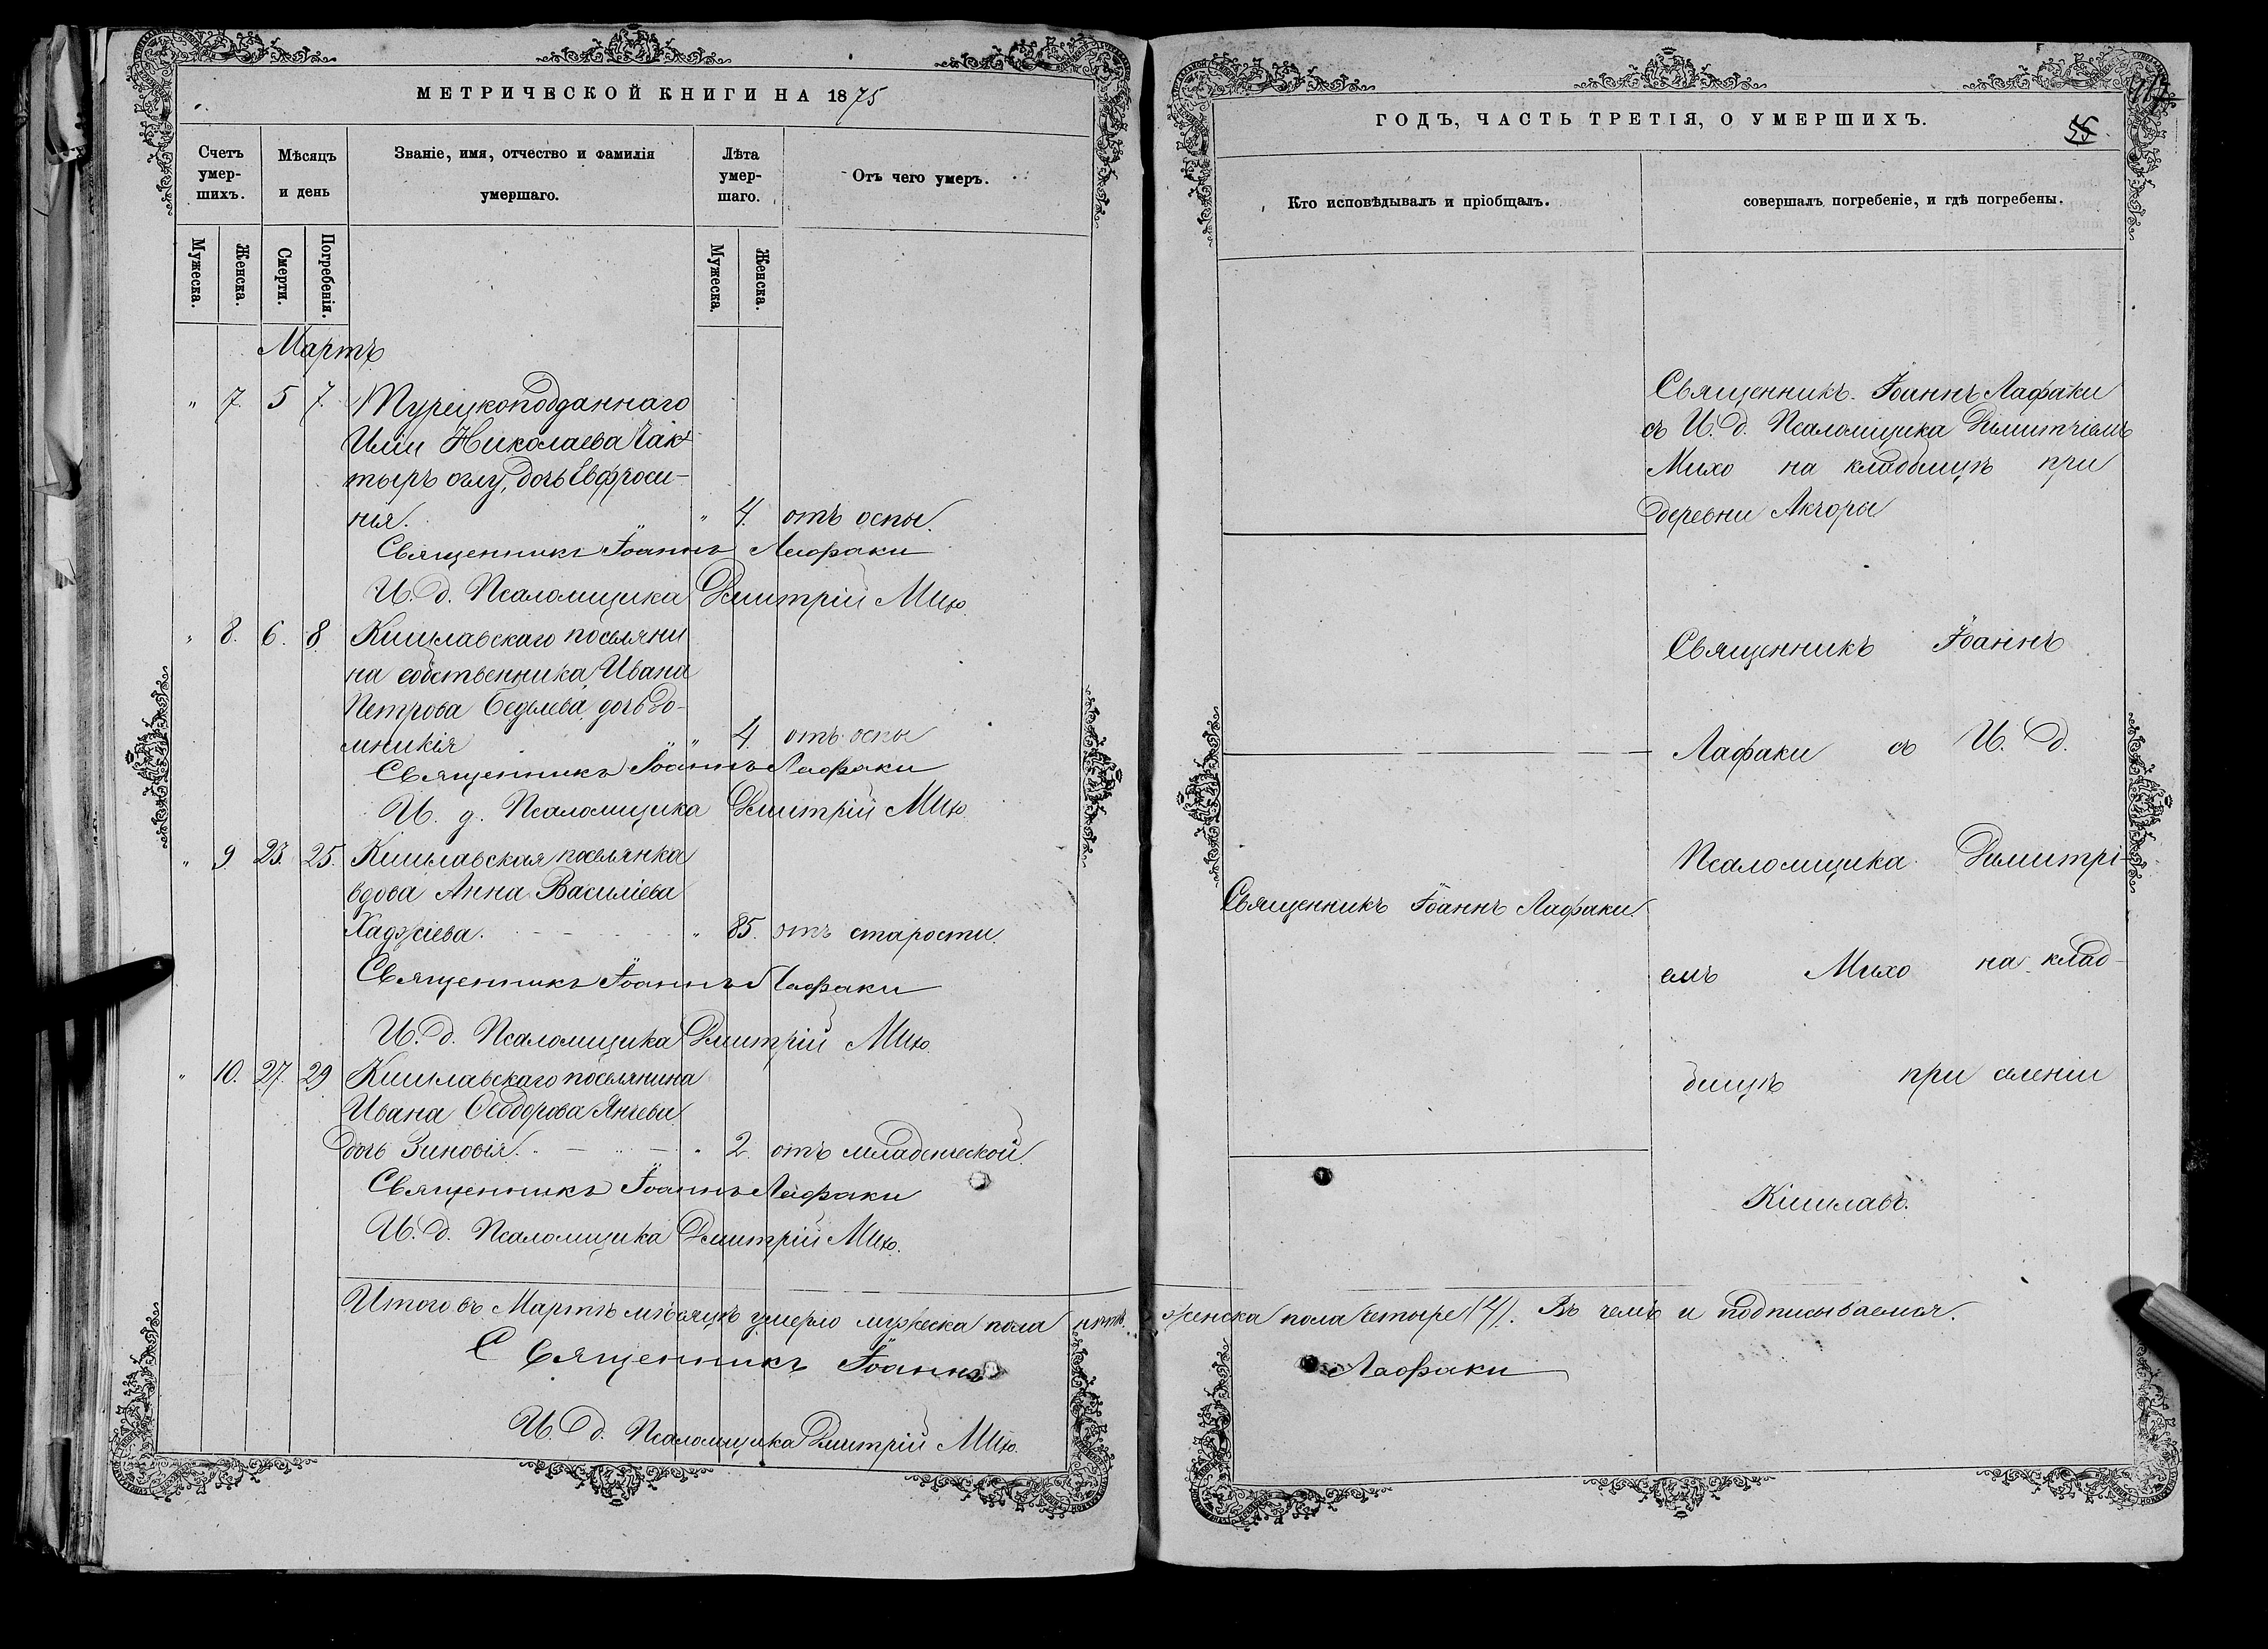 МЕТРИЧЕСКОЙ КНИГИ НА 1875
Счетъ умер-шихъ.
Мѣсяцъ и день
Званіе, имя, отчество и фамилія умершаго.
Лѣта умер-шаго.
Отъ чего умеръ.
Мужеска.
Женска.
Смерти.
Погребенія.
Мужеска.
Женска.
Мартъ
" 7. 5 7. Турецкоподданнаго
Иліи Николаева Чак
тыръ оглу, дочь Евфроси-
нія. " 4. отъ оспы.
Священникъ Іоаннъ Лафаки
И. д. Псаломщика Димитрій Михо.
" 8. 6. 8. Кишлавскаго поселяни
на собственника Ивана
Петрова дочь До-
мникія " 4. отъ оспы
Священникъ Іоаннъ Лафаки
И. д. Псаломщика Димитрій Михо.
" 9. 23. 25. Кишлавская поселянка
вдова Анна Василіева
Хаджіева. " 85. отъ старости.
Священникъ Іоаннъ Лафаки
И. д. Псаломщика Димитрій Михо.
" 10. 27. 29. Кишлавскаго поселянина
Ивана Ѳеодорова Янчева
дочь Зиновія. " 2. отъ младенческой.
Священникъ Іоаннъ Лафаки
И. д. Псаломщика Димитрій Михо.
Итого въ Мартѣ мѣсяцѣ умерло мужеска пола нѣтъ.
Священникъ Іоаннъ
И. д. Псаломщика Димитрій Михо.
ГОДЪ, ЧАСТЬ ТРЕТІЯ, О УМЕРШИХЪ.
Кто исповѣдывалъ и пріобщалъ.
совершалъ погребеніе, и гдѣ погребены.
Священникъ Іоаннъ Лафаки
съ И. д. Псаломщика Димитріемъ
Михо на кладбищѣ при
деревни Акчоры
Священникъ Іоаннъ
Лафаки съ И. д.
Псаломщика Димитрі-
Священникъ Іоаннъ Лафаки
емъ Михо на клад-
бищѣ при селеніи
Кишлавъ.
женска пола четыре (4). Въ чемъ и подписываемся.
Лафаки